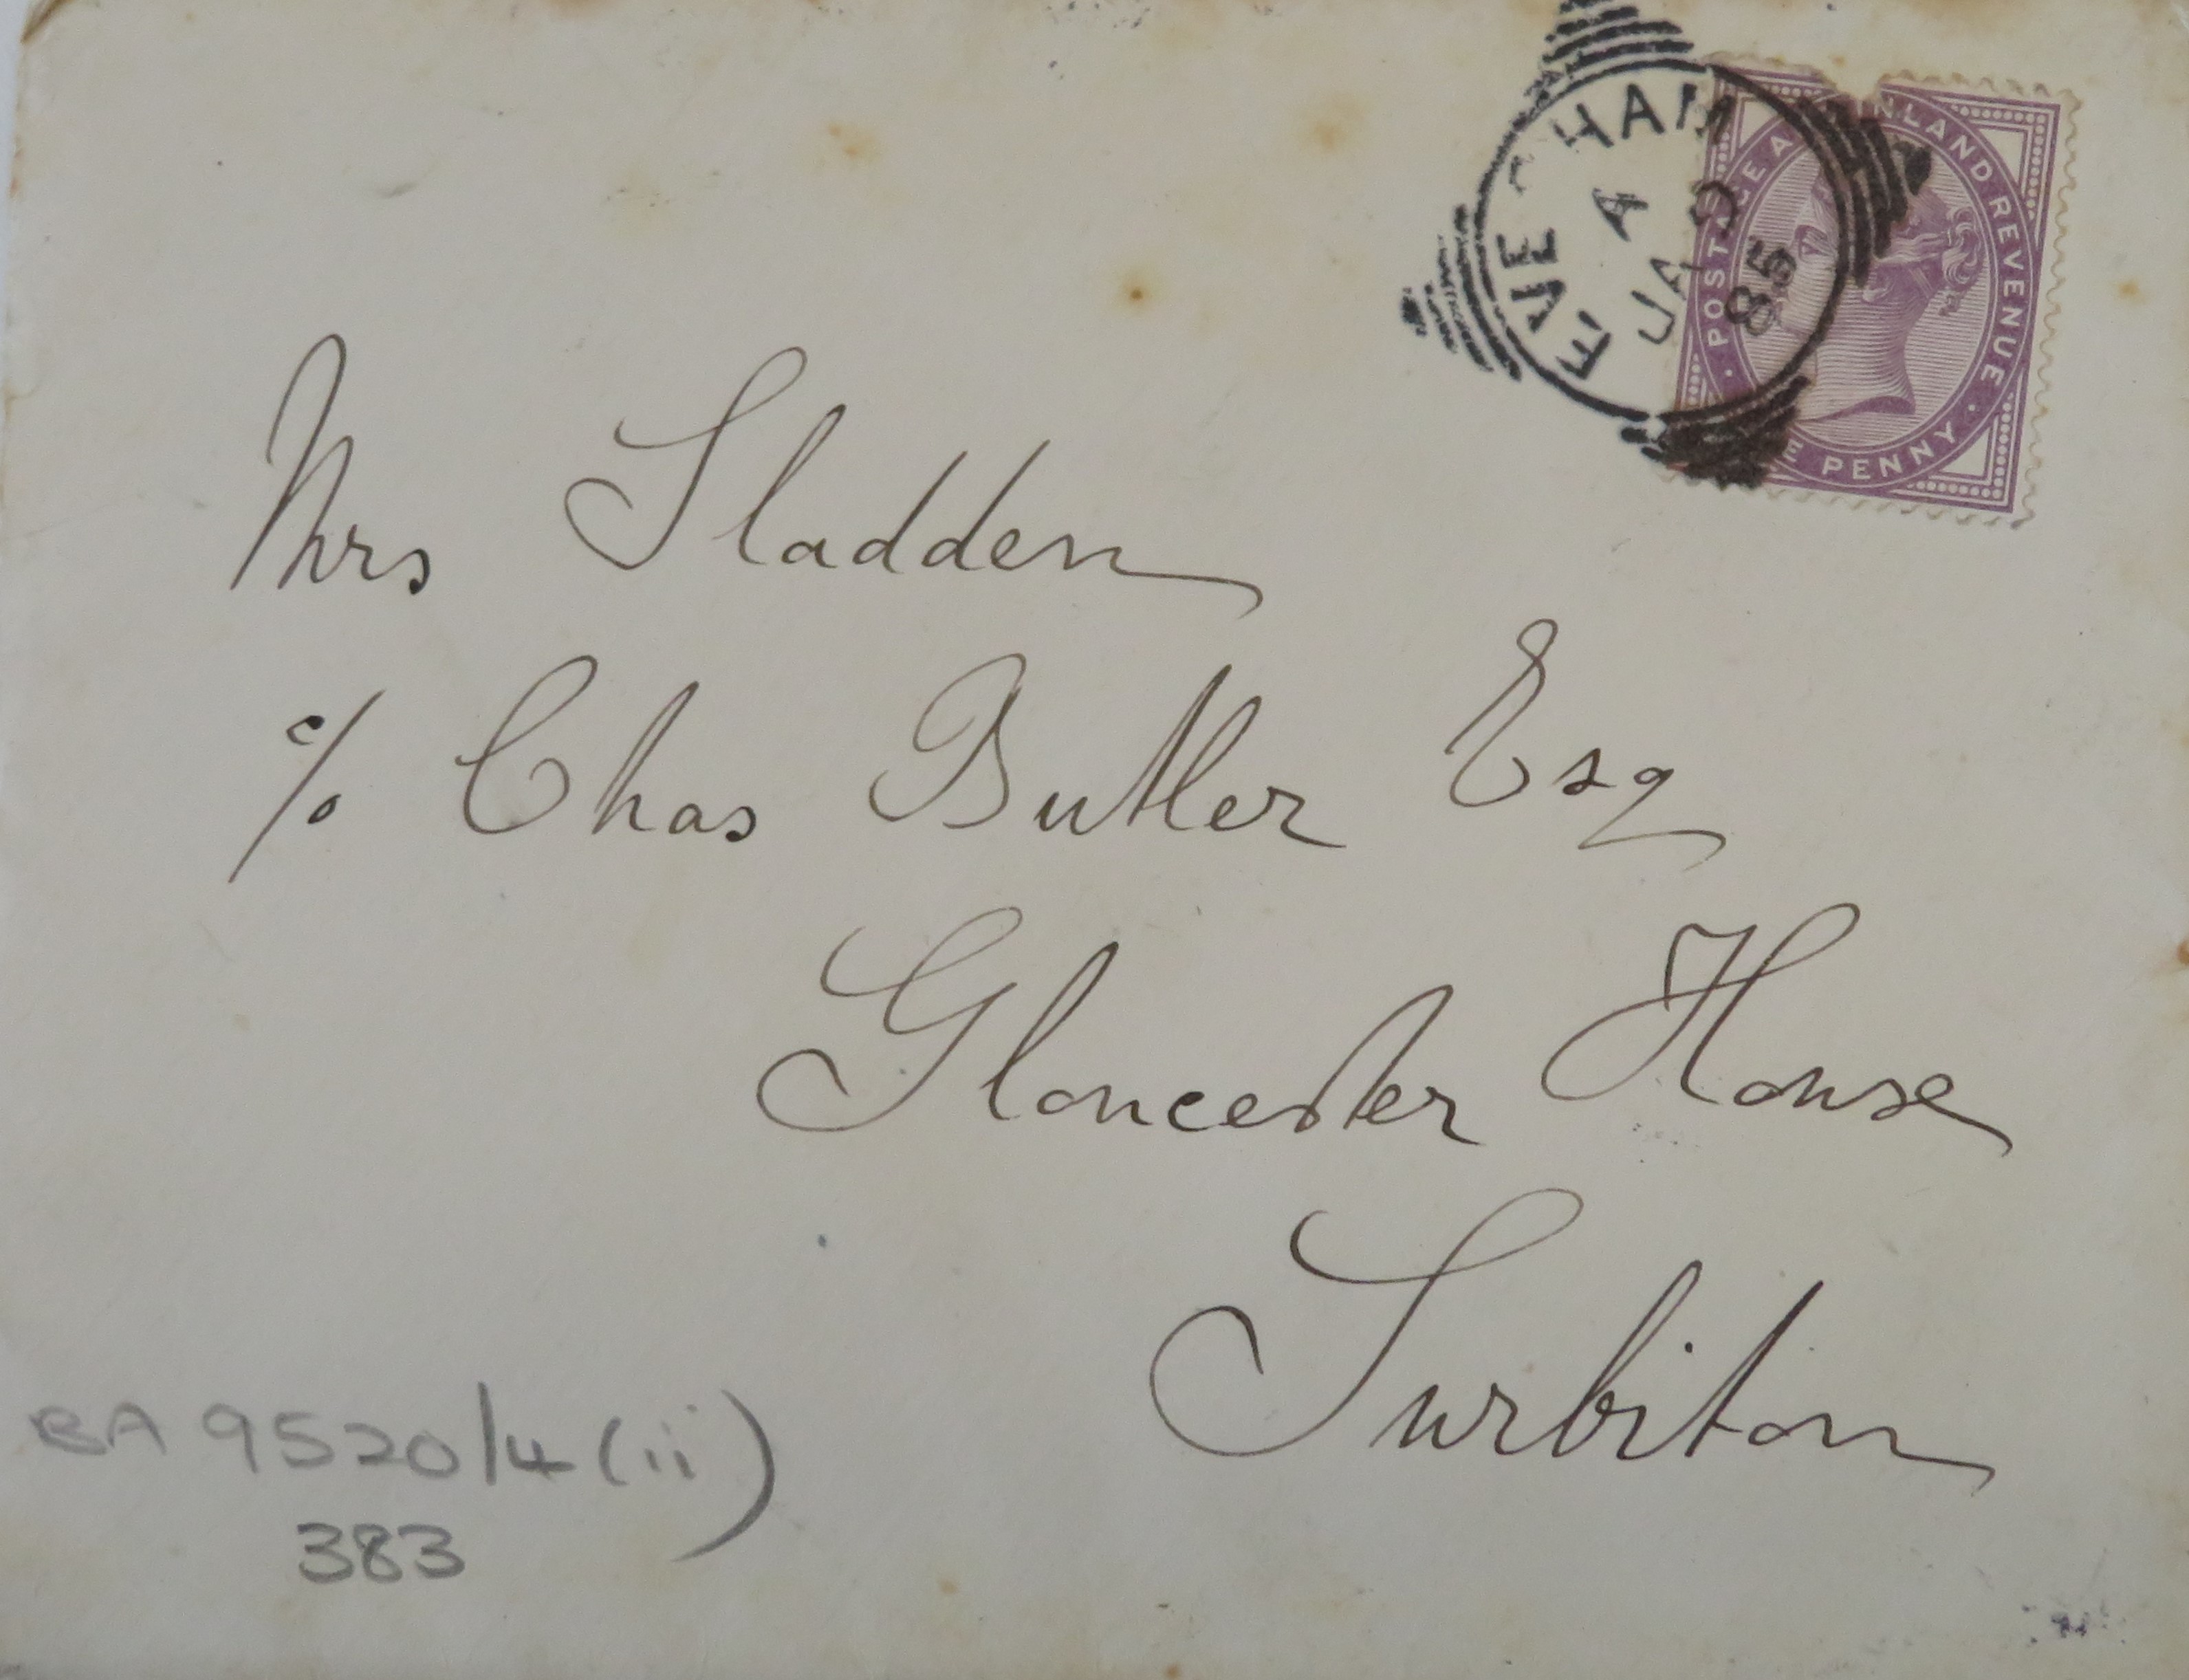 EVESHAM
A
JA
85
POSTAGE AND INLAND REVENUE
ONE PENNY
Mrs Sladden
c/o Chas Butler Esq
Gloucester House
Surbiton
BA 9520/4 (ii)
383